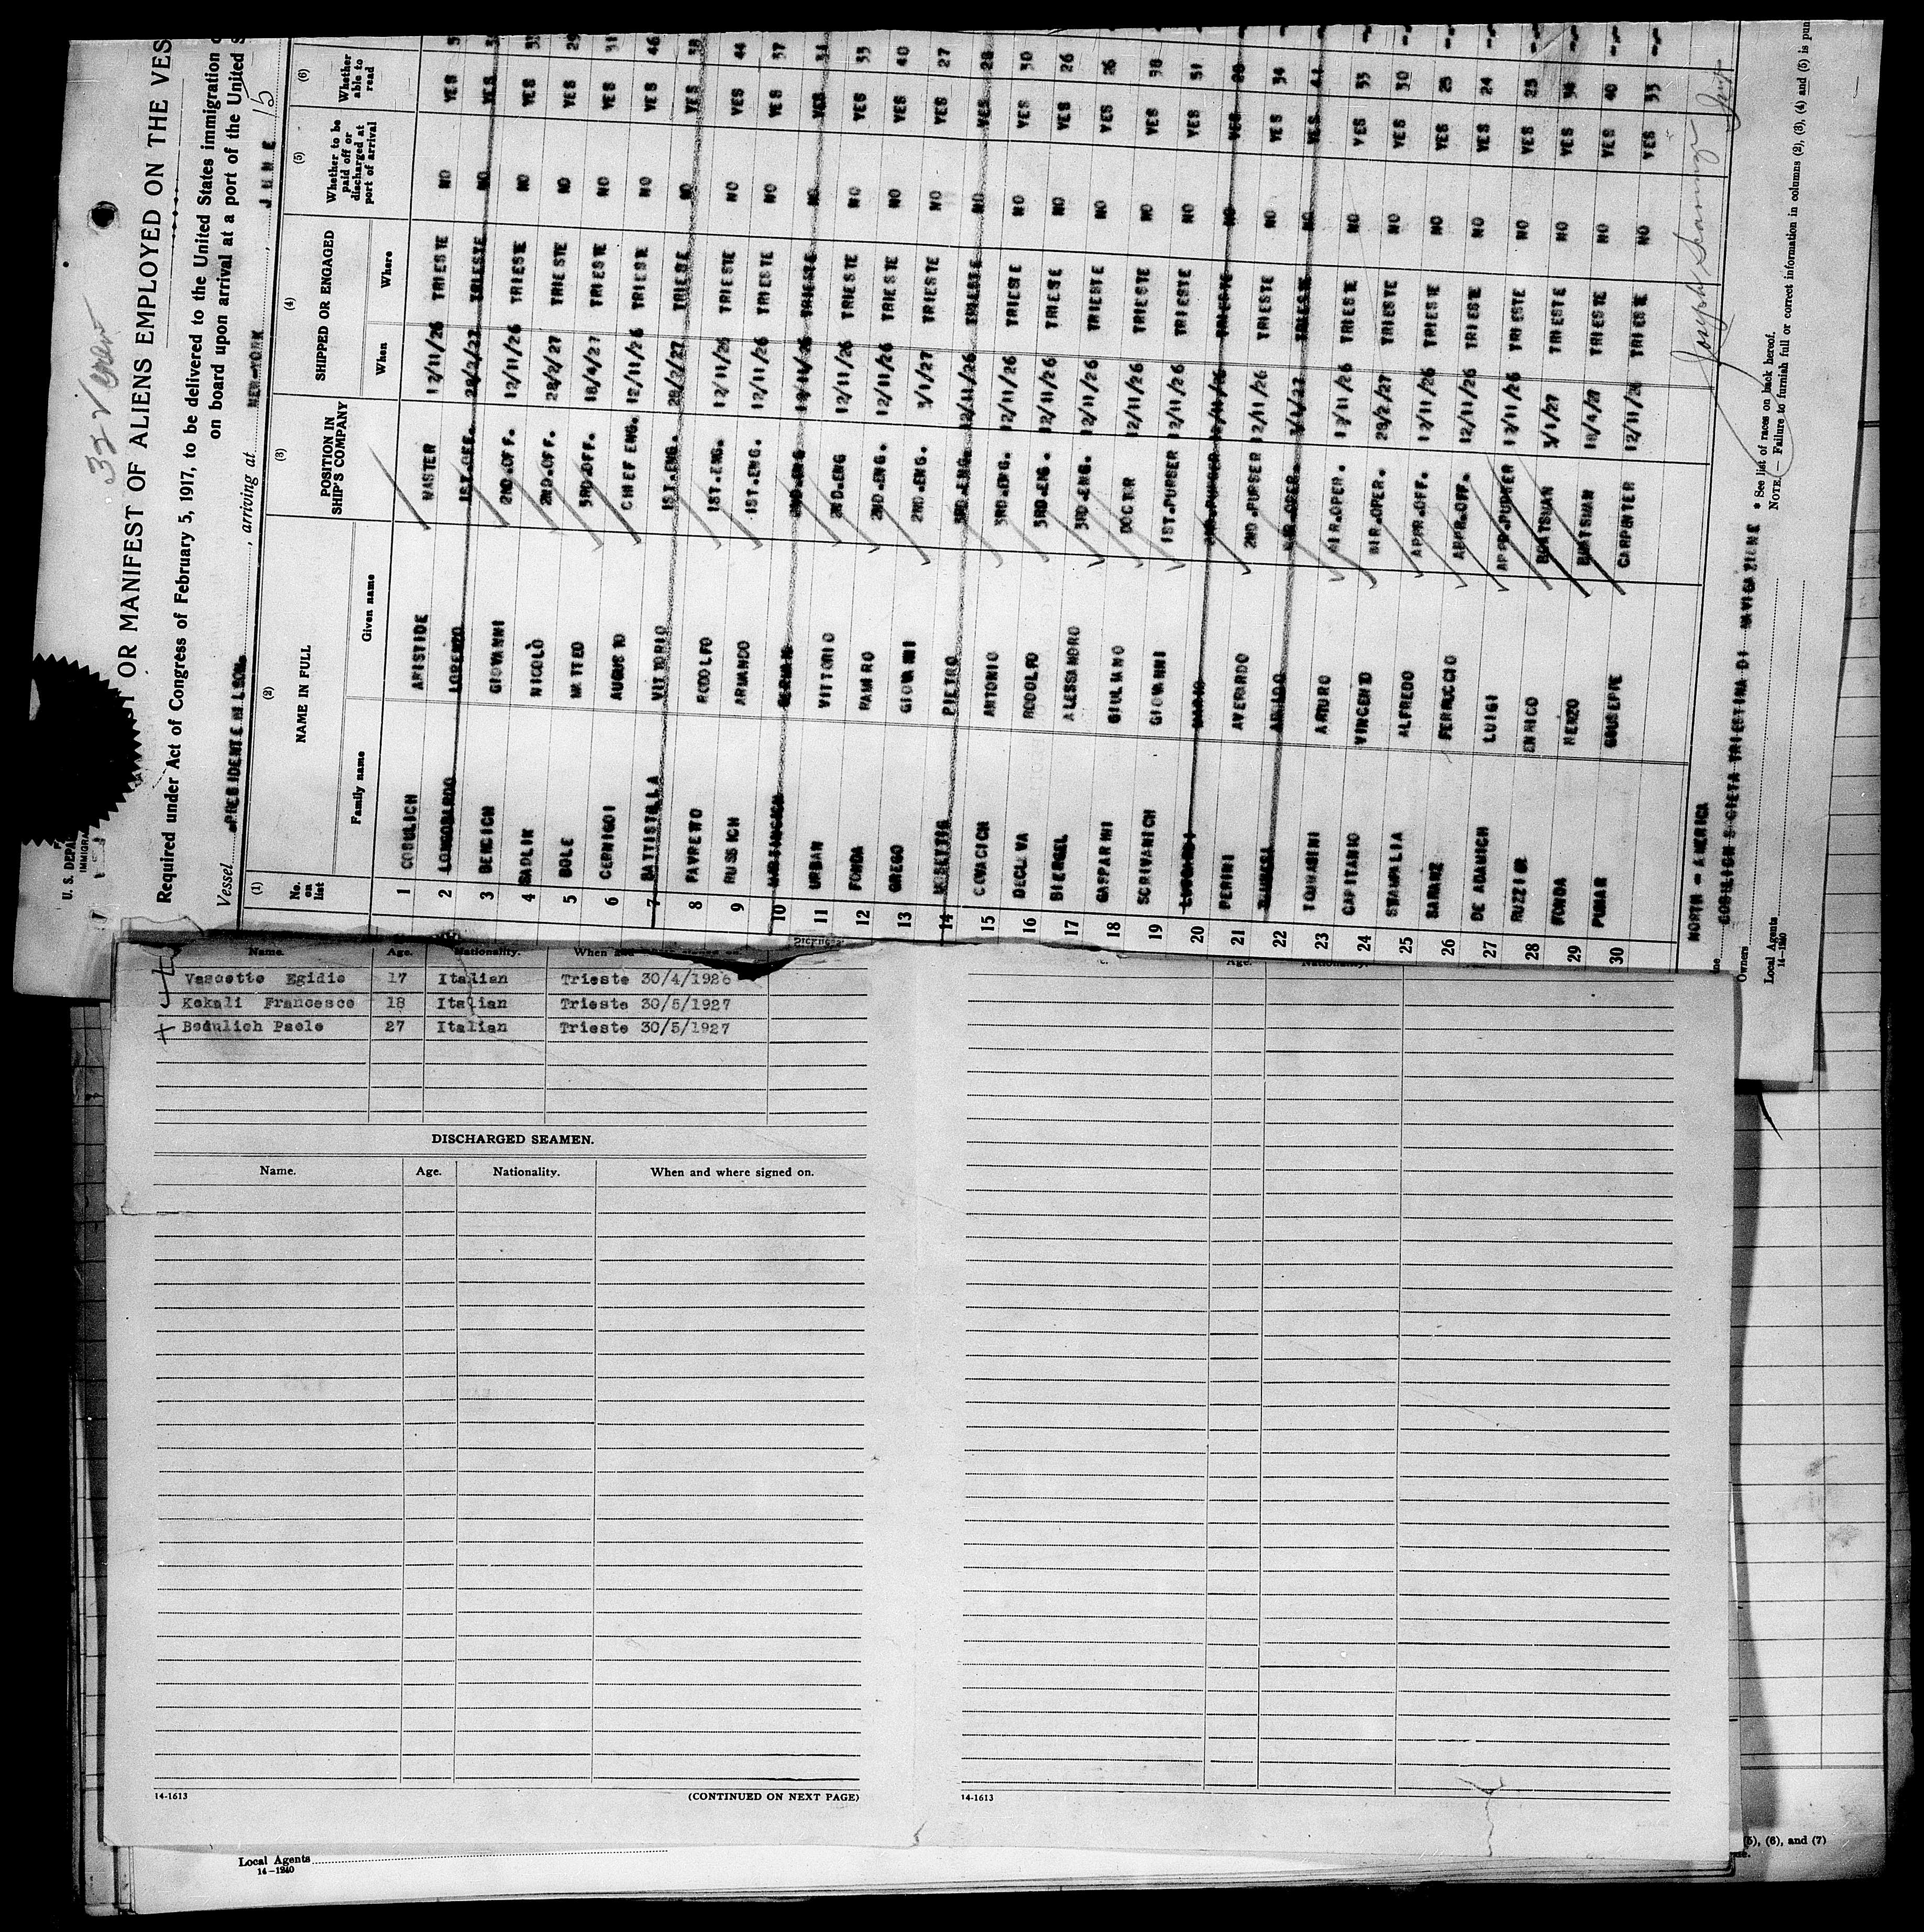 32 V
U. S. DEPA
IMMIGRA
OR MANIFEST OF ALIENS EMPLOYED ON THE VES
Required under Act of Congress of February 5, 1917, to be delivered to the United States immigration
on board upon arrival at a port of the United S
Vessel PRESIDENTE WILSON , arriving at NEW-YORK , JUNE 15
(1) (2) (3) (4) (5) (6)
No. on list NAME IN FULL POSITION IN SHIP'S COMPANY SHIPPED OR ENGAGED Whether to be paid off or discharged at port of arrival Whether able to read
Family name Given name When Where
1 COSULICH ARISTIDE MASTER 12/11/26 TRIESTE NO YES
2 LONGOBARDO LORENZO 1ST.OFF. 28/2/27 TRIESTE NO YES
3 BENCICH GIOVANNI 2ND.OFF. 12/11/26 TRIESTE NO YES
4 SADLIK NICOLÒ 2ND.OFF. 28/2/27 TRIESTE NO YES 29
5 BOLE MATTEO 3RD.OFF. 18/4/27 TRIESTE NO YES 31
6 CERNIGOI AUGUSTO CHIEF ENG. 12/11/26 TRIESTE NO YES 46
7 BATTISTILLA VITTORIO 1ST.ENG. 28/2/27 TRIESTE NO YES 38
8 FAVRETTO RODOLFO 1ST.ENG. 12/11/26 TRIESTE NO YES 44
9 RUSSICH ARMANDO 1ST.ENG. 12/11/26 TRIESTE NO YES 37
10 2ND.ENG 12/11/26 TRIESTE NO YES
11 URBAN VITTORIO 2ND.ENG 12/11/26 TRIESTE NO YES 33
12 FONDA RAMIRO 2ND.ENG. 12/11/26 TRIESTE NO YES 40
13 GREGO GIOVANNI 2ND.ENG. 3/1/27 TRIESTE NO YES 27
14 PIETRO 3RD.ENG. 12/11/26 TRIESTE NO YES 28
15 COVACICH ANTONIO 3RD.ENG. 12/11/26 TRIESTE NO YES 30
16 DECLEVA RODOLFO 3RD.ENG. 12/11/26 TRIESTE NO YES 26
17 BIERGEL ALESSANDRO 3RD.ENG. 12/11/26 TRIESTE NO YES 26
18 GASPARINI GIULIANO DOCTOR 12/11/26 TRIESTE NO YES 38
19 SCRIVANICH GIOVANNI 1ST.PURSER 12/11/26 TRIESTE NO YES 51
20 2ND.PURSER 12/11/26 TRIESTE NO YES
21 PERINI AVERARDO 2ND.PURSER 12/11/26 TRIESTE NO YES 34
22 TRIESTE NO YES
23 ARTURO 12/11/26 TRIESTE NO YES 33
24 CAPITANIO VINCENTO 28/2/27 TRIESTE NO YES 30
25 STAMPALIA ALFREDO APPR.OFF. 12/11/26 TRIESTE NO YES 25
26 FERRUCCIO APPR.OFF. 12/11/26 TRIESTE NO YES 24
27 DE ADAMICH LUIGI APPR.PURSER 12/11/26 TRIESTE NO YES
28 RUZZIER ENRICO BOATSMAN 3/1/27 TRIESTE NO YES
29 FONDA BOATSMAN 18/4/27 TRIESTE NO YES 40
30 GIUSEPPE CARPENTER 12/11/26 TRIESTE NO YES 33
NORTH - AMERICA
Owners COSULICH SOCIETA TRIESTINA DI NAVIGAZIONE
Local Agents
14-1240
* See list of races on back hereof.
NOTE.—Failure to furnish full or correct information in columns (2), (3), (4) and (5) is pun
Name. Age. Nationality. When and
Vascotto Egidio 17 Italian Trieste 30/4/1926
Kokali Francesco 18 Italian Trieste 30/5/1927
Bedulich Paolo 27 Italian Trieste 30/5/1927
DISCHARGED SEAMEN.
Name. Age. Nationality. When and where signed on.
14-1613 (CONTINUED ON NEXT PAGE)
14-1613
Local Agents
14-1240
(5), (6), and (7)